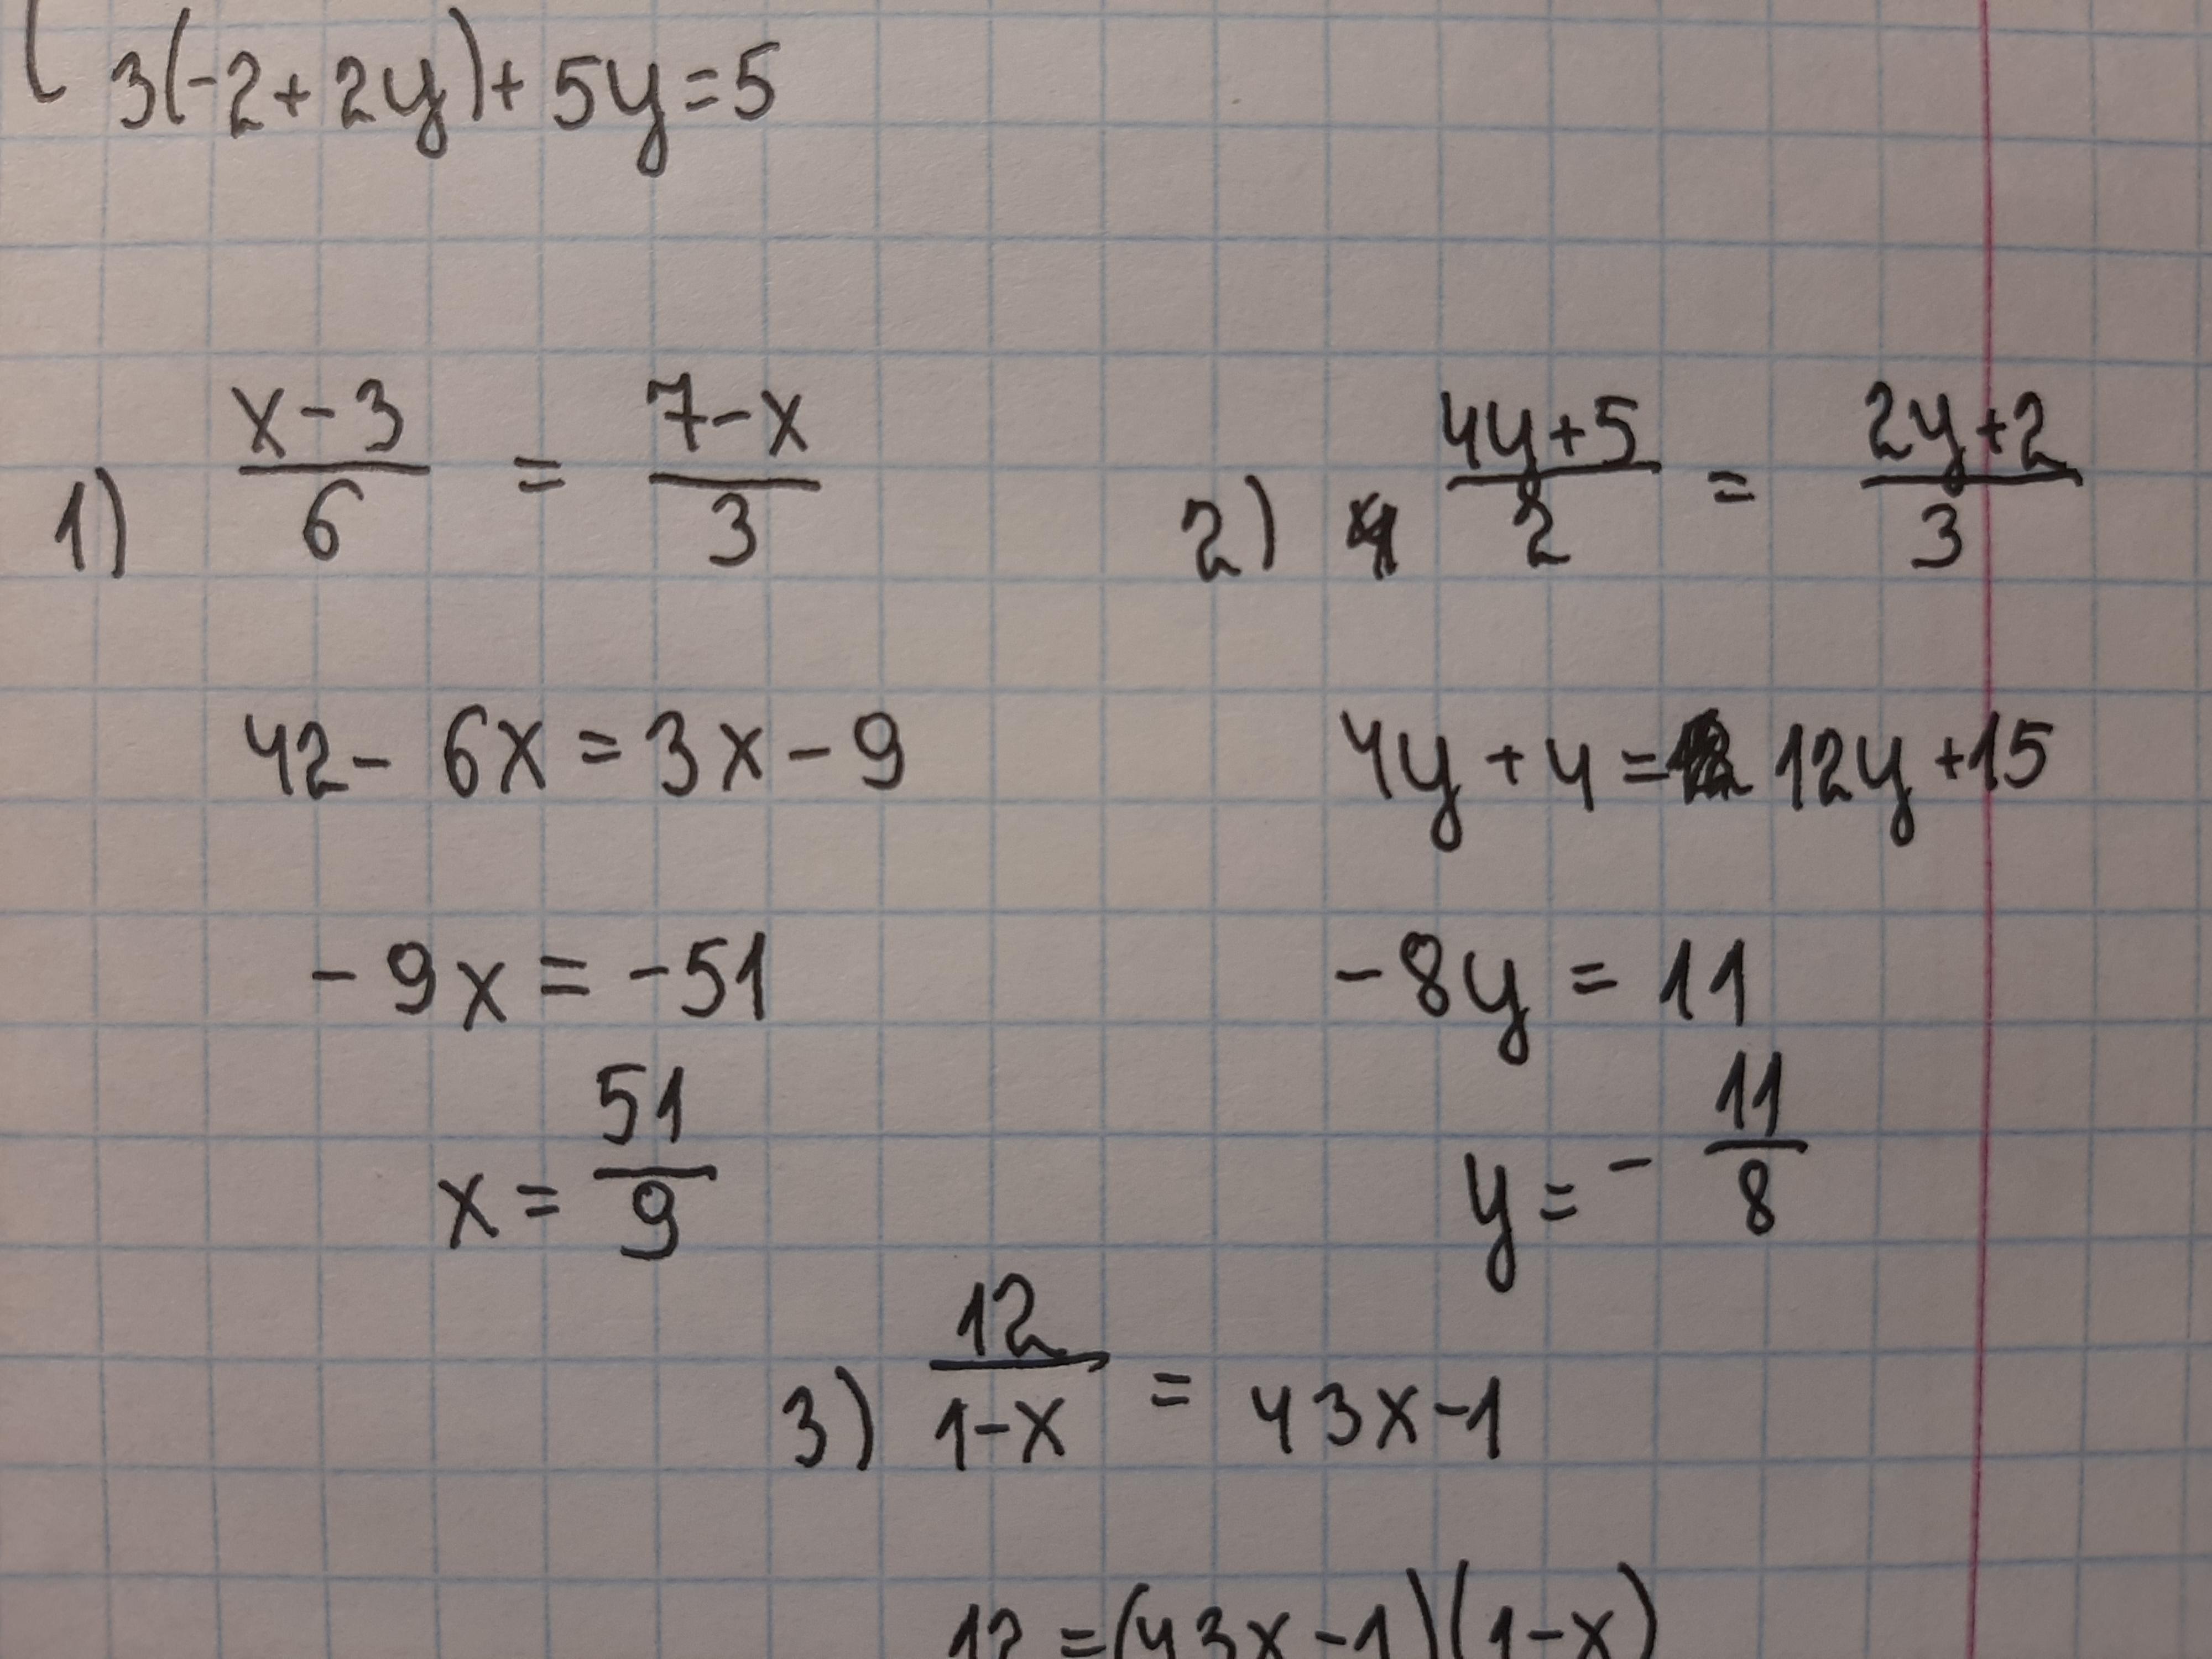 3(-2+2y)+5y=5
1) (x-3)/6 = (7-x)/3
42-6x=3x-9
-9x=-51
x=51/9
2) (4y+5)/2 = (2y+2)/3
4y+4=12y+15
-8y=11
y=-11/8
3) 12/(1-x) = 43x-1
12=(43x-1)(1-x)